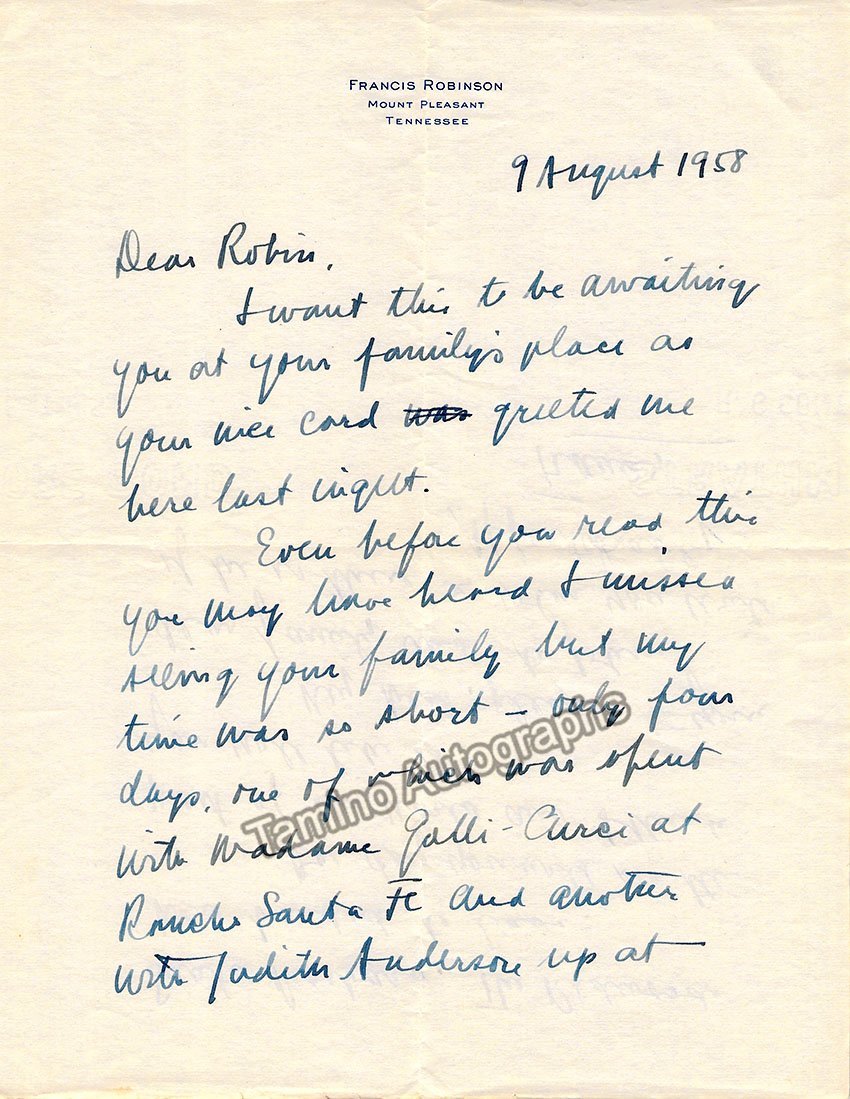 FRANCIS ROBINSON
MOUNT PLEASANT
TENNESSEE
9 August 1958
Dear Robin,
I want this to be awaiting
you at your family's place as
your nice card was greeted me
here last night.
Even before you read this
you may have heard I missed
seeing your family but my
time was so short – only four
days, one of which was spent
with Madame Galli-Curci at
Rancho Santa Fe and another
with Judith Anderson up at
Tamino Autographs